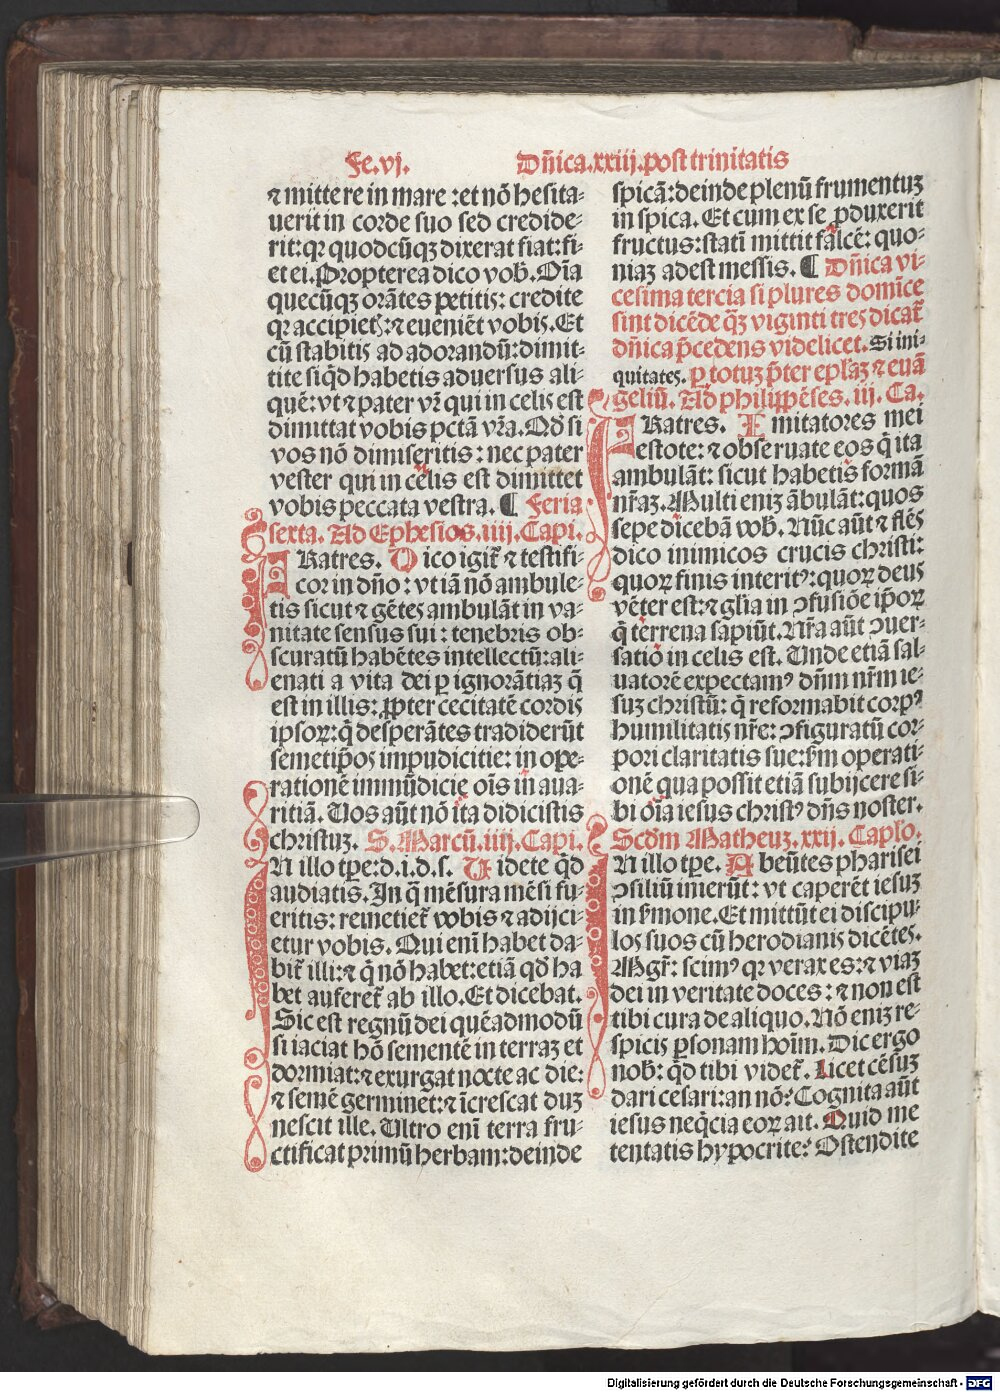 Fe.vj.
⁊ mittere in mare : et nõ hesita⸗
uerit in corde suo sed credide⸗
rit: qꝛ quodcũqꝫ dixerat fiat: fi⸗
et ei. Propterea dico vob̃. Oĩa
quecũqꝫ orãtes petitis: credite
qꝛ accipietꝭ: ⁊ eueniẽt vobis. Et
cũ stabitis ad adorandũ: dimit⸗
tite siqd̃ habetis aduersus ali⸗
quẽ: vt ⁊ pater vr̃ qui in celis est
dimittat vobis pctã vr̃a. Qd̃ si
vos nõ dimiseritis : nec pater
vester qui in celis est dimittet
vobis peccata vestra. ¶ Feria
sexta. Ad Ephesios. iiij. Capi.
FRatres. Dico igit᷑ ⁊ testifi⸗
cor in dño : vt iã nõ ambule⸗
tis sicut ⁊ gẽtes ambulãt in va⸗
nitate sensus sui : tenebris ob⸗
scuratũ habẽtes intellectũ: ali⸗
enati a vita dei ꝑ ignorãtiaꝫ q̃
est in illis: ꝓpter cecitatẽ cordis
ipsoꝝ: q̃ desperãtes tradiderũt
semetip̃os impudicitie: in ope⸗
rationẽ immũdicie oĩs in aua⸗
ritiã. Uos aũt nõ ita didicistis
christuꝫ. S. Marcũ. iiij. Capi.
IN illo tꝑe: d. i. d. s. Uidete qd̃
audiatis. In q̃ mẽsura mẽsi fu⸗
eritis: remetiet᷑ vobis ⁊ adijci⸗
etur vobis. Qui enĩ habet da⸗
bit᷑ illi: ⁊ q̃ nõ habet: etiã qd̃ ha
bet auferet᷑ ab illo. Et dicebat.
Sic est regnũ dei quẽadmodũ
si iaciat hõ sementẽ in terraꝫ et
dormiat: ⁊ exurgat nocte ac die:
⁊ semẽ germinet: ⁊ ĩcrescat duꝫ
nescit ille. Ultro enĩ terra fru⸗
ctificat primũ herbam: deinde
Dñica. xxiij. post trinitatis
spicã: deinde plenũ frumentuꝫ
in spica. Et cum ex se ꝓduxerit
fructus: statĩ mittit falcẽ: quo⸗
niaꝫ adest messis. ¶ Dñica vi⸗
cesima tercia si plures domĩce
sint dicẽde qꝫ̃ viginti tres dicat᷑
dñica p̃cedens videlicet. Si ini⸗
quitates. ꝑ totuꝫ p̃ter epl̃aꝫ ⁊ euã
geliũ. Ad philippẽses. iij. Ca.
FRatres. Imitatores mei
estote: ⁊ obseruate eos q̃ ita
ambulãt: sicut habetis formã
nr̃aꝫ. Multi eniꝫ ãbulãt: quos
sepe dicebã vob̃. Nũc aũt ⁊ flẽs
dico inimicos crucis christi:
quoꝝ finis interitꝰ: quoꝝ deus
vẽter est: ⁊ glĩa in ꝯfusiõe ip̃oꝝ
q̃ terrena sapiũt. Nr̃a aũt ꝯuer⸗
satiõ in celis est. Unde etiã sal⸗
uatorẽ expectamꝰ dñm nr̃m ie⸗
suꝫ christũ: q̃ reformabit corpꝰ
humilitatis nr̃e: ꝯfiguratũ cor⸗
pori claritatis sue: ẜm operati⸗
onẽ qua possit etiã subijcere si⸗
bi oĩa iesus christꝰ dñs noster.
Scd̃m Matheuꝫ. xxij. Caplo.
IN illo tꝑe. Abeũtes pharisei
ꝯsiliũ inierũt: vt caperẽt iesuꝫ
in ẜmone. Et mittũt ei discipu⸗
los suos cũ herodianis dicẽtes.
Mgr̃: scimꝰ qꝛ verax es: ⁊ viaꝫ
dei in veritate doces : ⁊ non est
tibi cura de aliquo. Nõ eniꝫ re⸗
spicis ꝑsonam hoĩm. Dic ergo
nob̃: qd̃ tibi videt᷑. Licet cẽsuꝫ
dari cesari: an nõ? Cognita aũt
iesus neq̃cia eoꝝ ait. Quid me
tentatis hypocrite? Ostendite
Digitalisierung gefördert durch die Deutsche Forschungsgemeinschaft - DFG